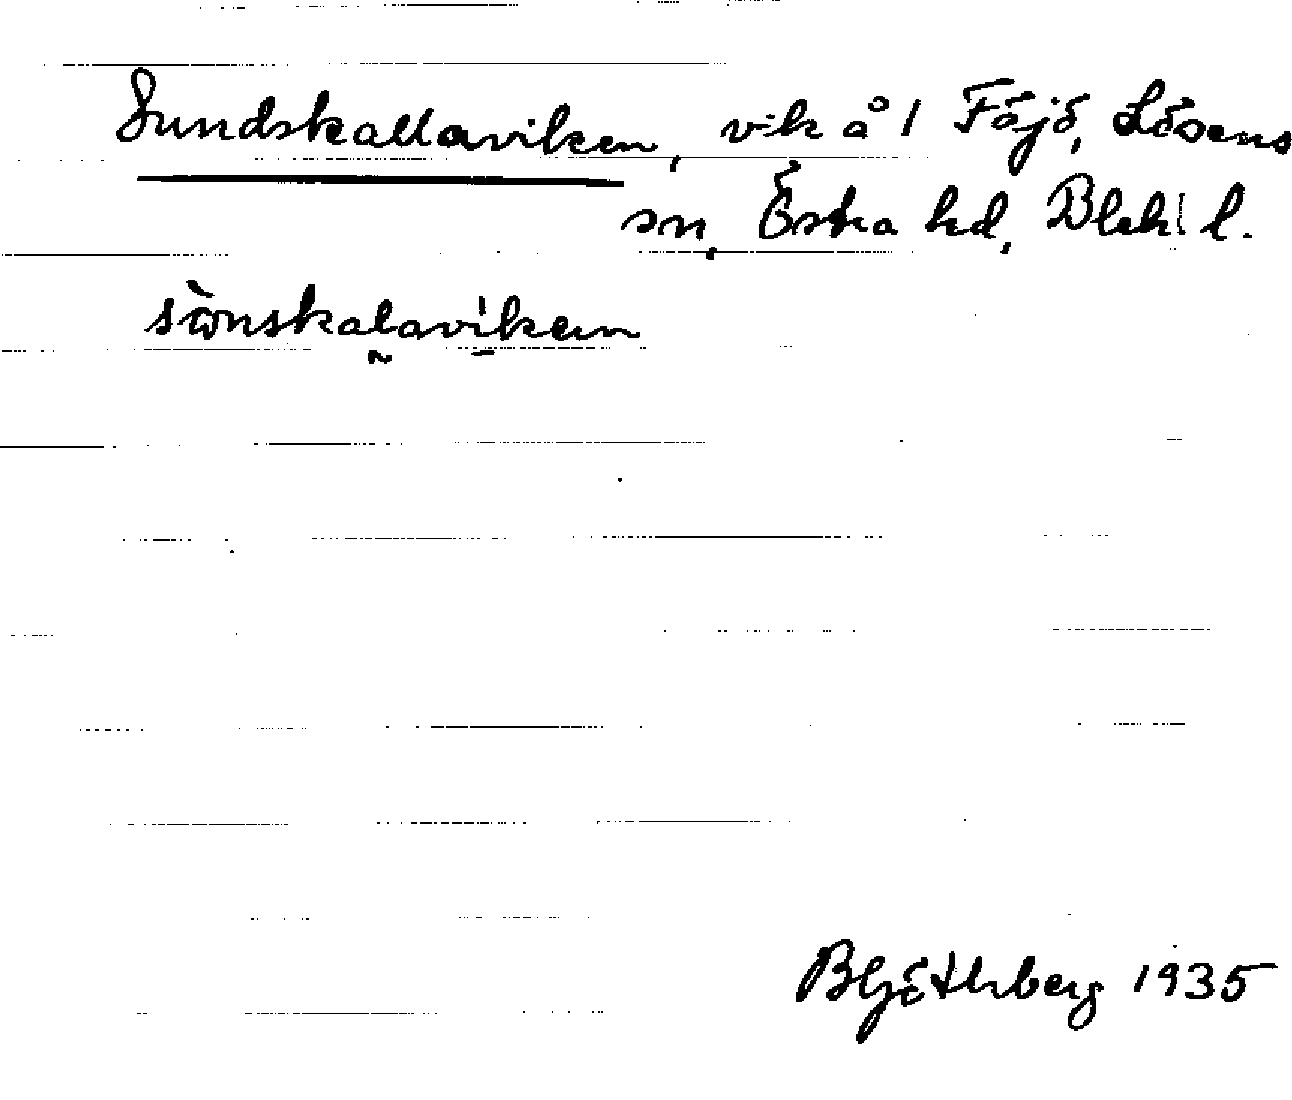 Sundskallaviken, vik å l Föjö, Lösens
sn, Östra hd, Blek. l.
sònskalavikən
B Göthberg 1935